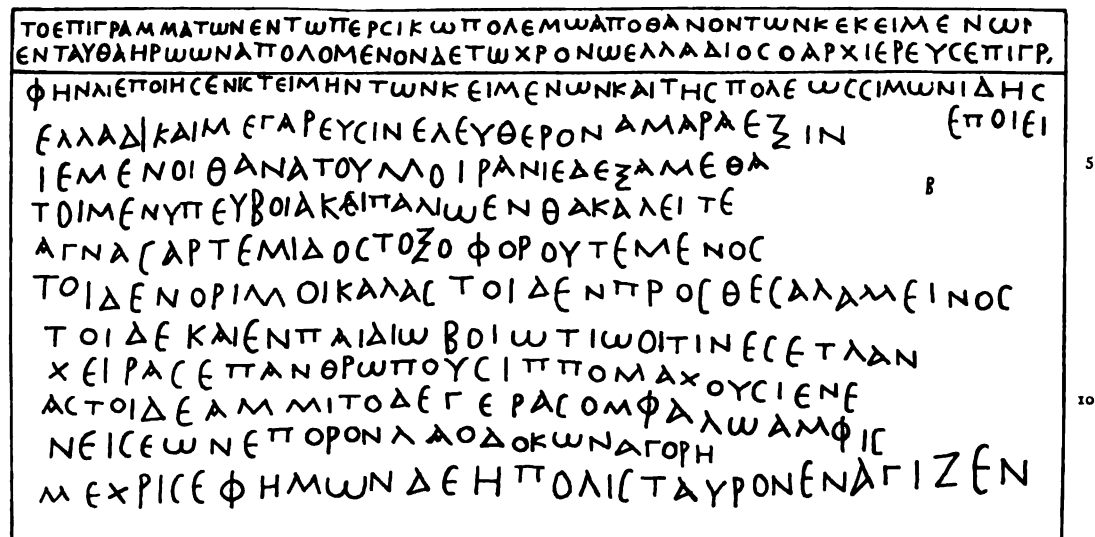 ΤΟΕΠΙΓΡΑΜΜΑΤΩΝΕΝΤΩΠΕΡCΙΚΩΠΟΛΕΜΩΑΠΟΘΑΝΟΝΤΩΝΚΕΚΕΙΜΕΝΩΡ
ΕΝΤΑΥΘΑΗΡΩΩΝΑΠΟΛΟΜΕΝΟΝΔΕΤΩΧΡΟΝΩΕΛΛΑΔΙΟCΟΑΡΧΙΕΡΕΥCΕΠΙΓΡ.
ΦΗΝΑΙΕΠΟΙΗCΕΝΙCΤΕΙΜΗΝΤΩΝΚΕΙΜΕΝΩΝΚΑΙΤΗCΠΟΛΕΩCCΙΜΩΝΙΔΗC
ΕΛΛΑΔΙΚΑΙΜΕΓΑΡΕΥCΙΝΕΛΕΥΘΕΡΟΝΑΜΑΡΑΕΞΙΝ ΕΠΟΙΕΙ
ΙΕΜΕΝΟΙΘΑΝΑΤΟΥΜΟΙΡΑΝΙΕΔΕΞΑΜΕΘΑ 5
ΤΟΙΜΕΝΥΠΕΥΒΟΙΑΚΑΙΠΑΛΙΩΕΝΘΑΚΑΛΕΙΤΕ Β
ΑΓΝΑCΑΡΤΕΜΙΔΟCΤΟΞΟΦΟΡΟΥΤΕΜΕΝΟC
ΤΟΙΔΕΝΟΡΙΜΟΙΚΑΛΑCΤΟΙΔΕΝΠΡΟCΘΕCΑΛΑΜΕΙΝΟC
ΤΟΙΔΕΚΑΙΕΝΠΑΙΔΙΩΒΟΙΩΤΙΩΟΙΤΙΝΕCΕΤΛΑΝ
ΧΕΙΡΑCΕΠΑΝΘΡΩΠΟΥCΙΠΠΟΜΑΧΟΥCΙΕΝΕ
ΑCΤΟΙΔΕΑΜΜΙΤΟΔΕΓΕΡΑCΟΜΦΑΛΩΑΜΦΙC 10
ΝΕΙCΕΩΝΕΠΟΡΟΝΛΑΟΔΟΚΩΝΑΓΟΡΗ
ΜΕΧΡΙCΕΦΗΜΩΝΔΕΗΠΟΛΙCΤΑΥΡΟΝΕΝΑΓΙΖΕΝ